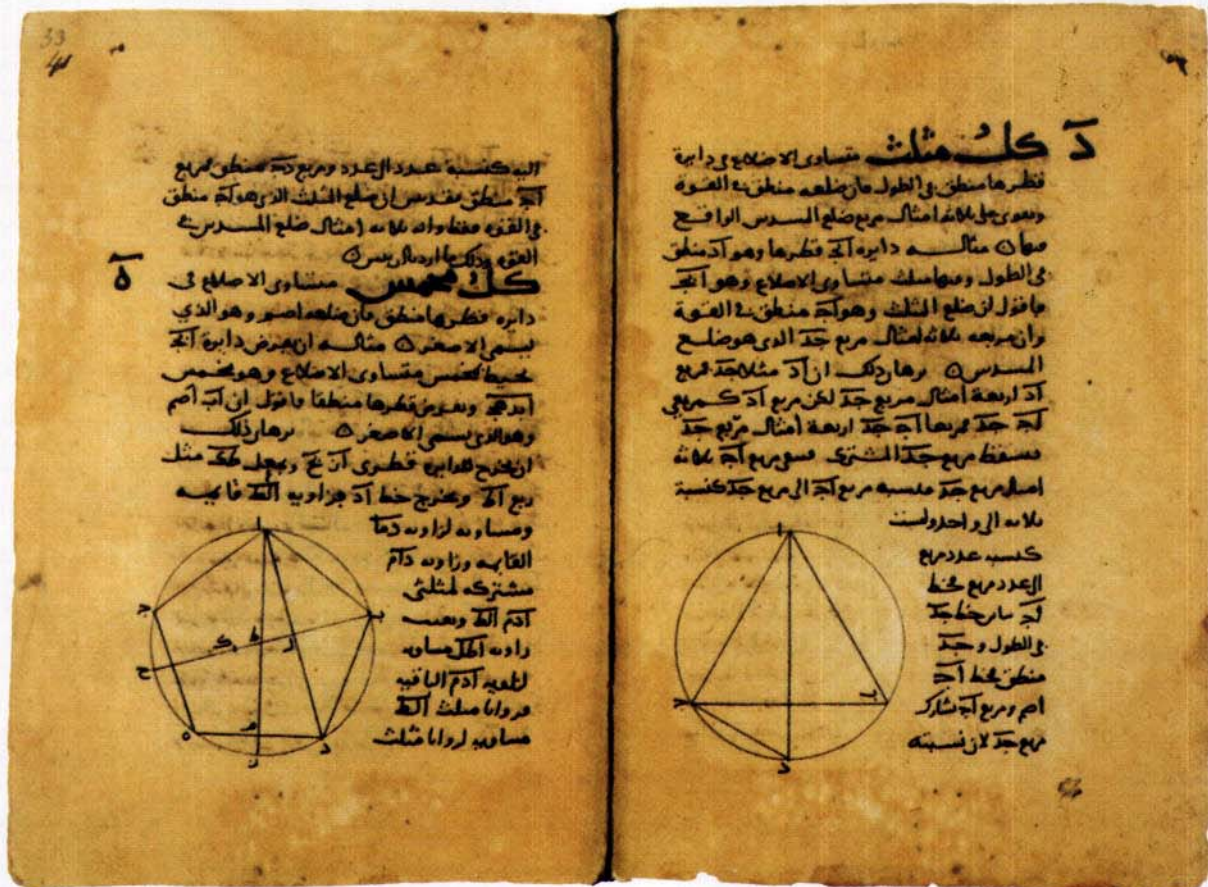 د كل مثلث متساوى الاضلاع فى دايرة
قطرها منطق فى الطول فان ضلعه منطق فى القوة
ويقوى على ثلاثه امثال مربع ضلع المسدس الواقع
فيها ه مثالـــه دايره ابج قطرها وهو اد منطق
فى الطول وفيها مثلث متساوى الاضلاع وهو ابج
فاقول ان ضلع المثلث وهو اج منطق فى القوة
وان مربعه ثلاثه امثال مربع جد الذى هو ضلـع
المسدس ه برهان ذلك ان اد مثلا جد فمربع
اد اربعة أمثال مربع جد لكن مربع اد كمربعي
اج جد فمربعا اج جد اربعة أمثال مربع جد
فنسقط مربع جد المشترك فبقى مربع اج ثلاثه
امثال مربع جد فنسبه مربع اج الى مربع جد كنسبة
ثلاثه الى واحد وليست
كنسبه عدد مربع
الى عدد مربع فخط
اج يباين خط جد
فى الطول و جد
منطق فخط اج
اصم ومربع اج يشارك
مربع جد لان نسبته
33
اليه كنسبة عدد الى عدد ومربع دج منطق فمربع
اج منطق فقد تبين ان ضلع المثلث الذى هو اج منطق
فى القوه فقط وانه ثلاثه امثال ضلع المسدس فى
القوه وذلك ما اردنا ان نبين ه
ه كل مخمس متساوى الاضلاع فى
دايره قطرها منطق فان ضلعه اصم وهو الذي
يسمى الاصغر ه مثالـــه ان نفرض دايرة ابج
تحيط بمخمس متساوى الاضلاع وهو مخمس
ابدهج ونفرض قطرها منطقا فاقول ان اب أصم
وهو الذى يسمى الاصغر ه برهان ذلك
ان نخرج للدايره قطرى از بح ونجعل طك مثل
ربع اط ونخرج خط اد فزاويه الط قايمـه
ومساويه لزاويه دما
القايمه وزاويه دام
مشتركه لمثلثى
ادم الط وتبقى
زاويه اطل مساويه
لزاويه ادم الباقيه
فزوايا مثلث الط
مساويه لزوايا مثلث
ا
ب
ج
د
ا
ب
ج
ح
ط
ك
ل
م
د
ه
ز